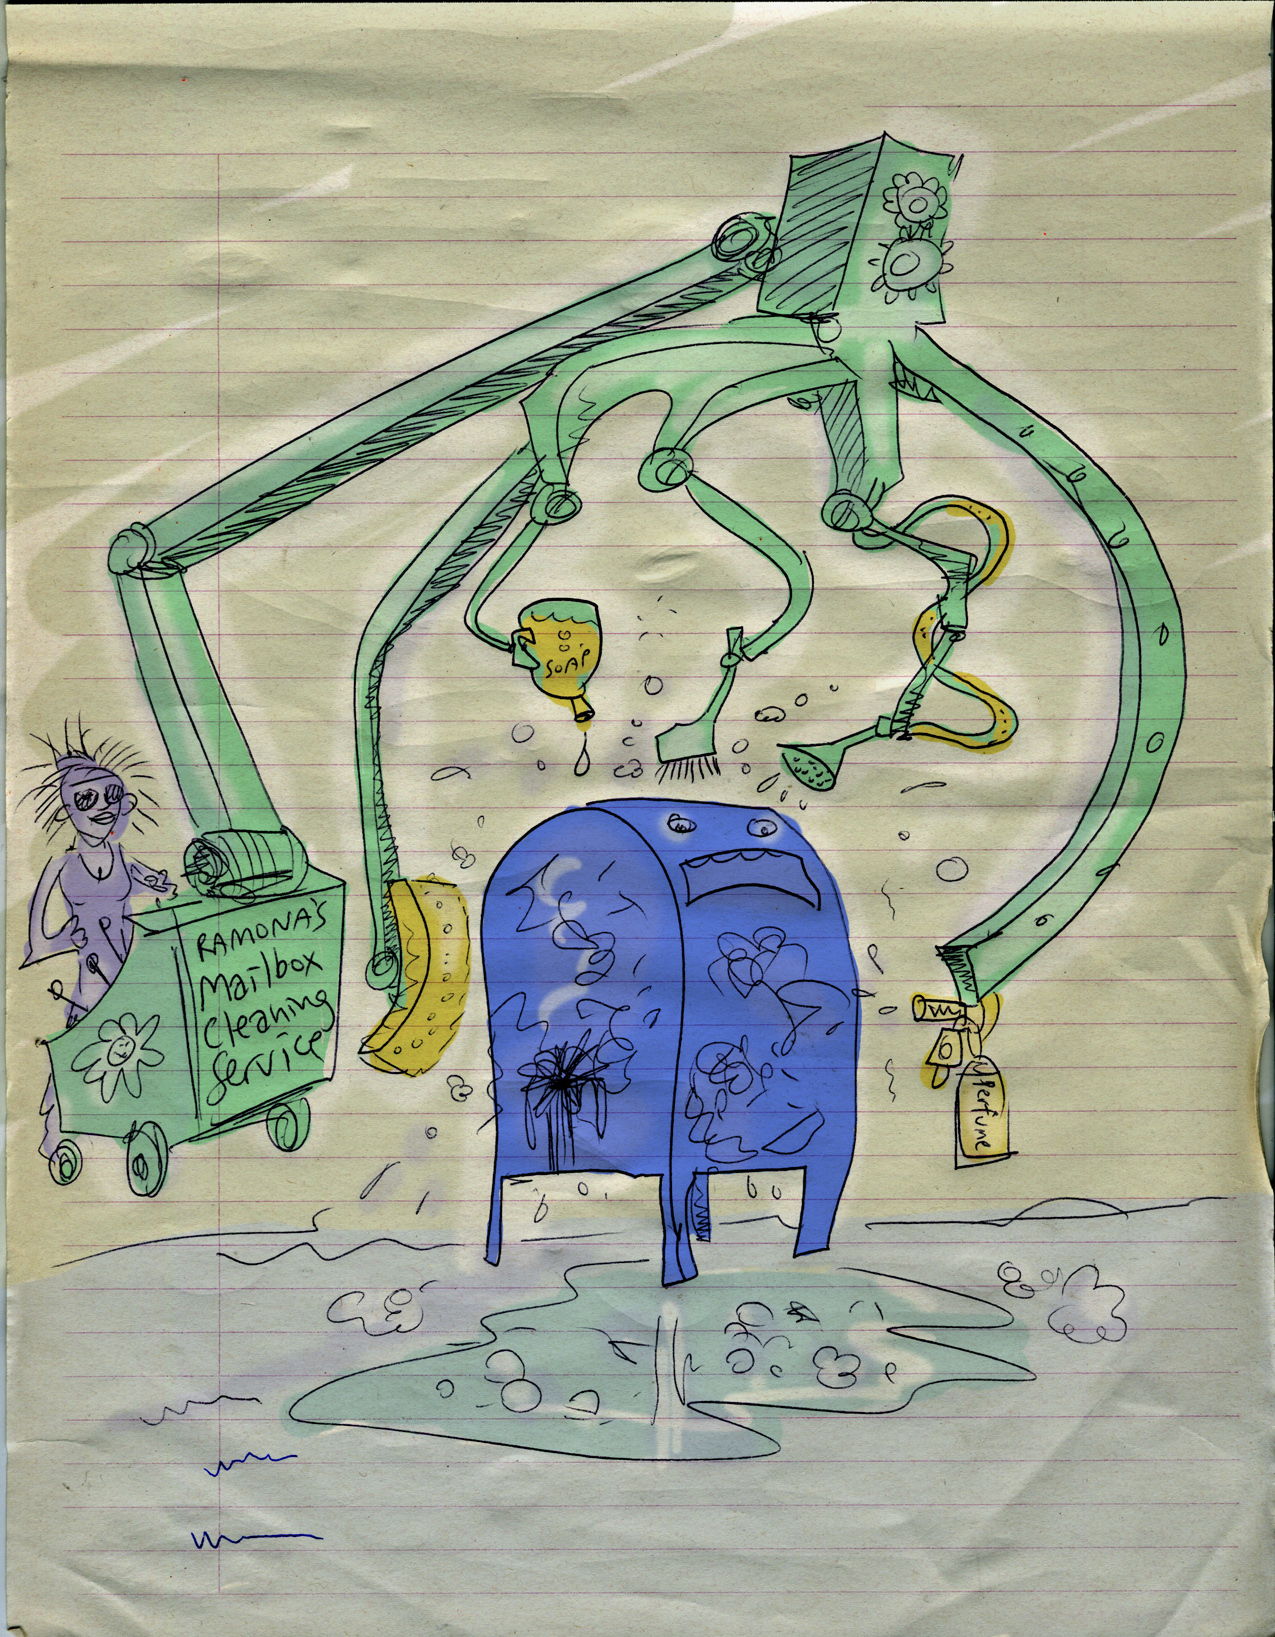 SOAP
RAMONA'S
Mailbox
Cleaning
Service
Perfume